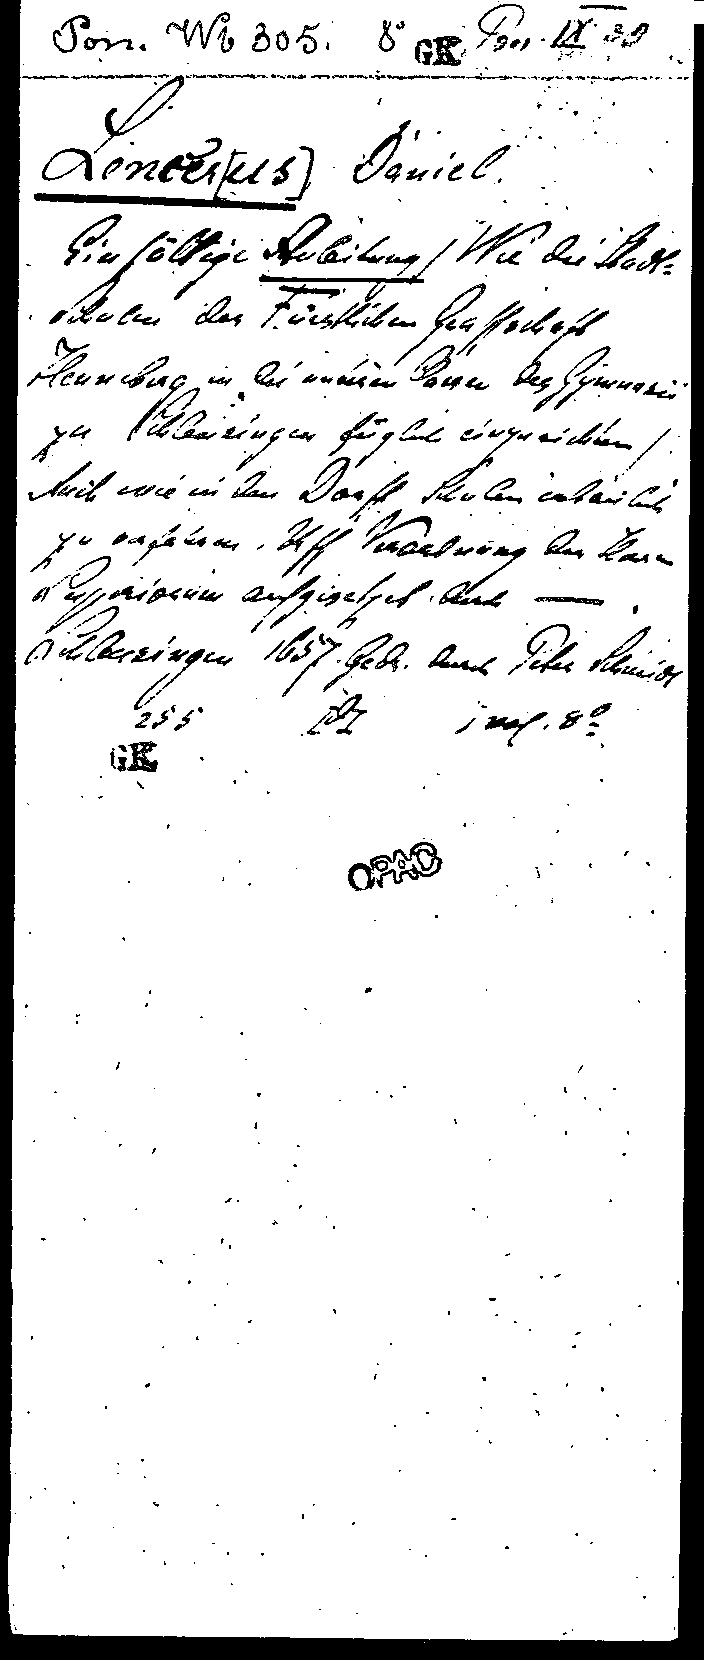 Pon. Wb 305. 8° GK Pon. IX 30
L
Lencer[us] Daniel.
Einfältige Anleitung / Wie die Stadt-
schulen der Fürstlichen Graffschaft
Henneberg in die untern Classen des Gymnasii
zu Schleusingen füglich einzurichten /
Auch wie in den Dorff Schulen
zu verfahren. Uff Verordnung der Herrn
aufgesetzet durch — .
Schleusingen 1657. Gedr. durch Peter Schmidt
255 8°
GK
OPAC